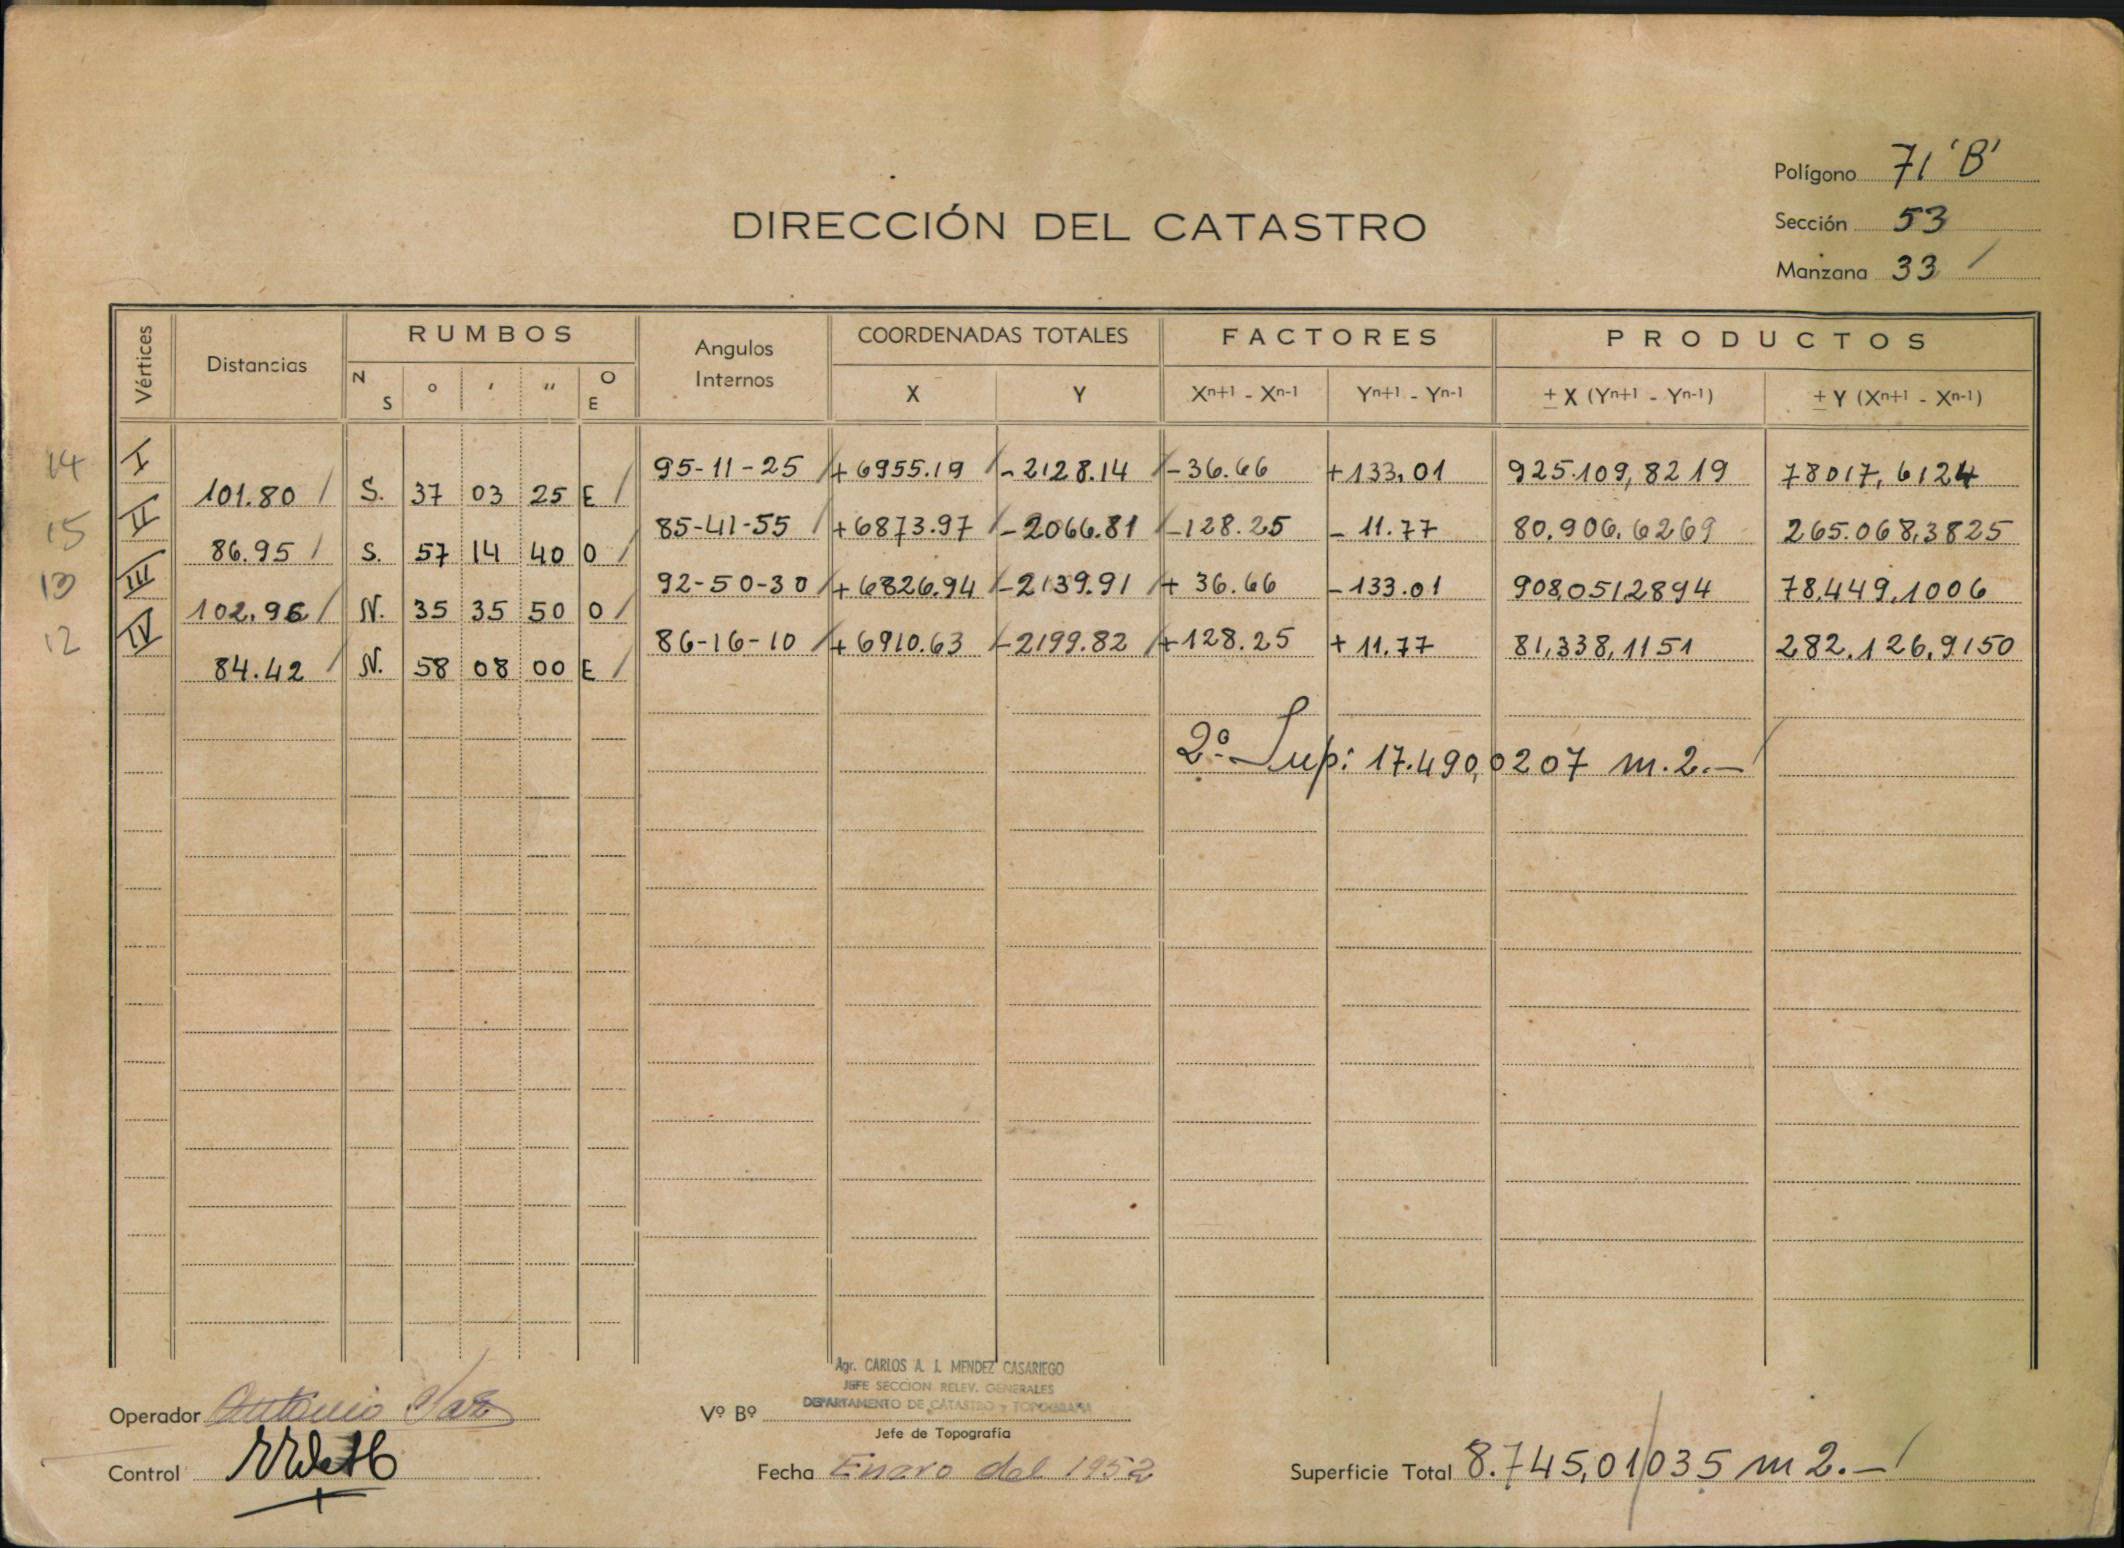 Polígono 71 'B'
DIRECCIÓN DEL CATASTRO
Sección 53
Manzana 33 /
Vértices Distancias RUMBOS Angulos Internos COORDENADAS TOTALES FACTORES PRODUCTOS
N S ° ' " O E X Y Xn+1 - Xn-1 Yn+1 - Yn-1 ± X (Yn+1 - Yn-1) ± Y (Xn+1 - Xn-1)
14 I 95-11-25 / +6955.19 / -2128.14 / -36.66 +133,01 925.109,8219 78017,6124
101.80 / S. 37 03 25 E /
15 II 85-41-55 / +6873.97 / -2066.81 / -128.25 - 11.77 80.906.6269 265.068,3825
86.95 / S. 57 14 40 O /
13 III 92-50-30 / +6826.94 / -2139.91 / + 36.66 -133.01 908.051,2894 78.449.1006
102.96 / N. 35 35 50 O /
12 IV 86-16-10 / +6910.63 / -2199.82 / +128.25 + 11.77 81,338,1151 282.126.9150
84.42 / N. 58 08 00 E /
2º Sup: 17.490,0207 m.2.- /
Agr. CARLOS A. J. MENDEZ CASARIEGO
JEFE SECCION RELEV. GENERALES
DEPARTAMENTO DE CATASTRO y TOPOGRAFIA
Operador Antonio
Vº Bº
Jefe de Topografía
Control
Fecha Enero del 1952
Superficie Total 8.745,01/035 m2.- /